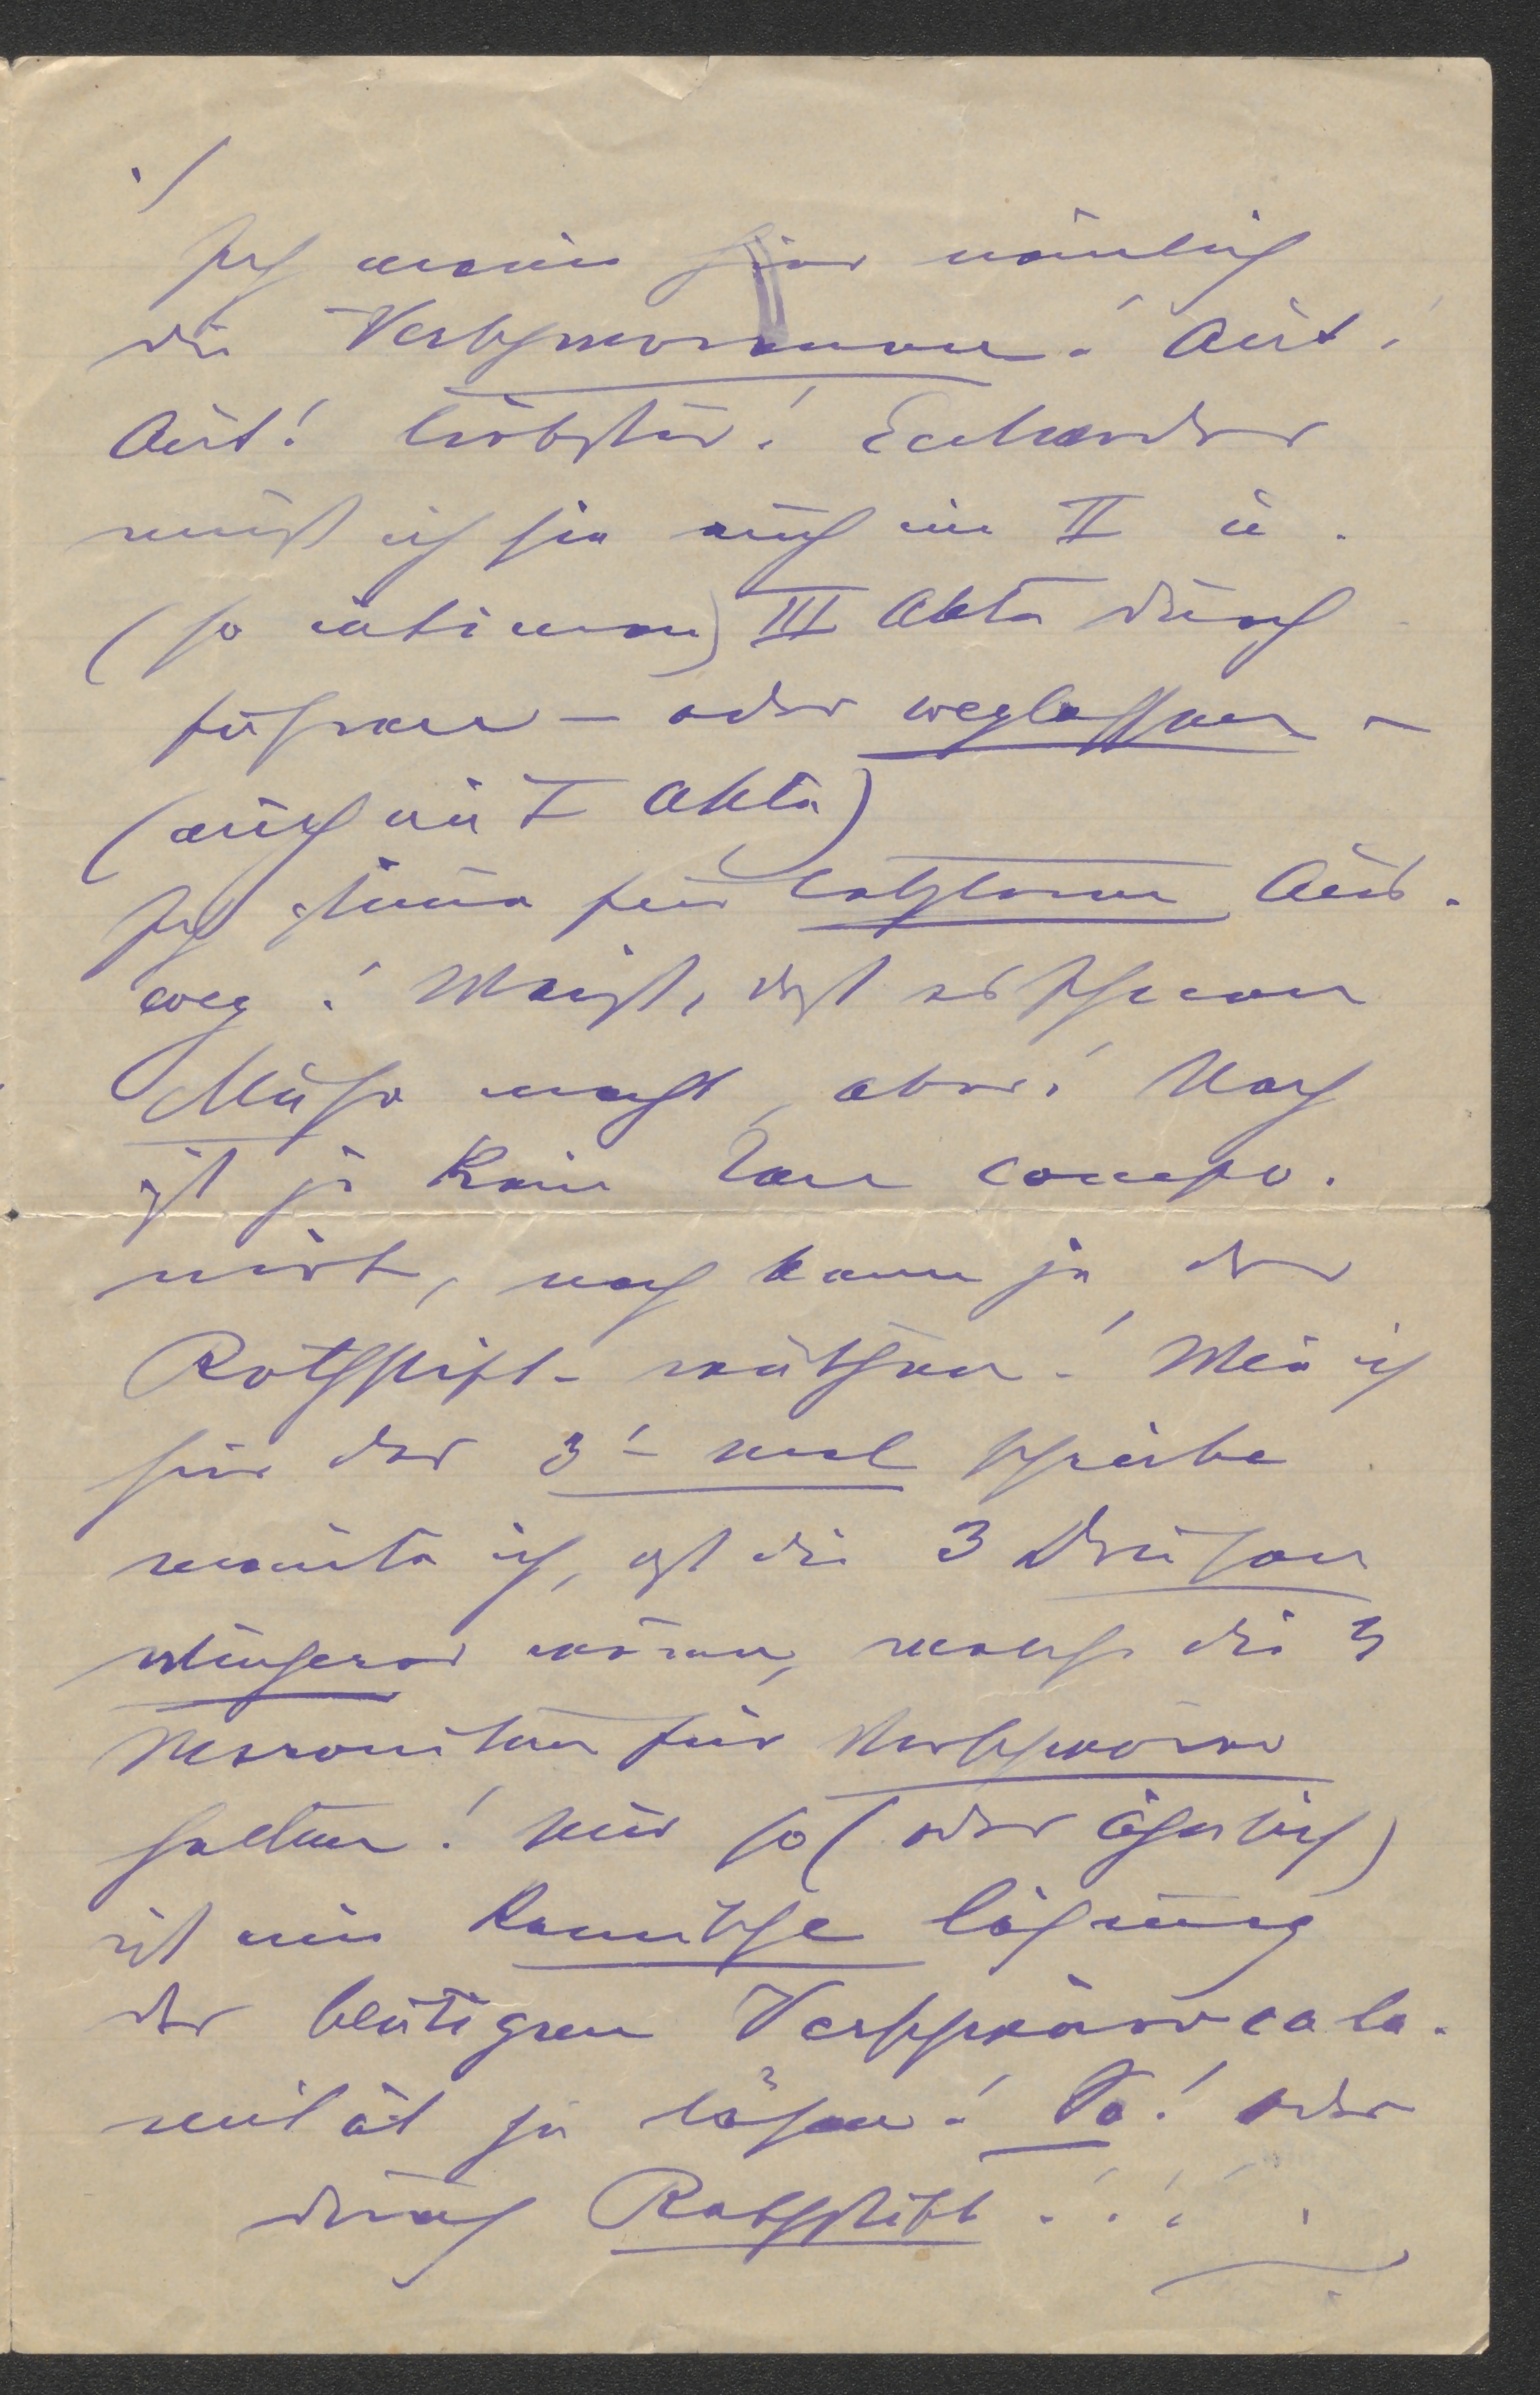 ./
Ich meine hier nämlich
die Verschworenen! Aut!
Aut! liebster! Entweder
musst ich sie auch im II u.
(so intimen) III Akte durch
führen – oder weglassen –
(auch im I Akte)
Ich stimme für letzteren Aus-
weg! Weiss, dass es Ihnen
Mühe macht, aber! Noch
ist ja kein Ton compo-
nirt, noch kann ja der
Rothstift wüthen! Wie ich
hier das 3te mal schreibe
meinte ich, dass die 3 Drusen
klüger wären, welche die 3
Maroniten für Verschwörer
halten! Nur so (oder ähnlich)
ist eine komische Lösung
der blutigen Verschwörercala-
mität zu lösen! So! oder
durch Rothstift . ! ! !